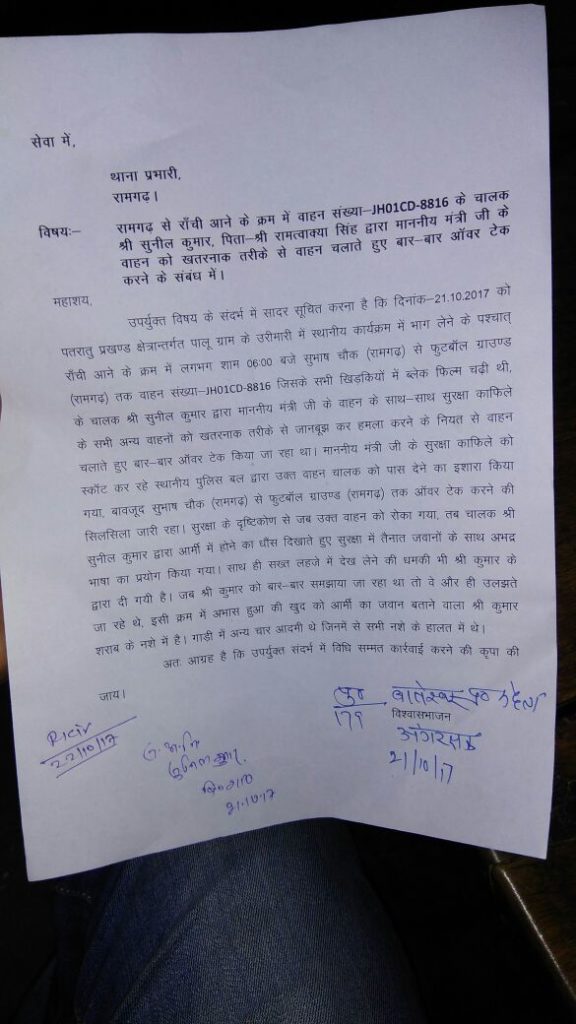 सेवा में,
थाना प्रभारी,
रामगढ़।
विषयः– रामगढ़ से राँची आने के क्रम में वाहन संख्या–JH01CD-8816 के चालक
श्री सुनील कुमार, पिता–श्री रामत्वाक्या सिंह द्वारा माननीय मंत्री जी के
वाहन को खतरनाक तरीके से वाहन चलाते हुए बार–बार ऑवर टेक
करने के संबंध में।
महाशय,
उपर्युक्त विषय के संदर्भ में सादर सूचित करना है कि दिनांक–21.10.2017 को
पतरातु प्रखण्ड क्षेत्रान्तर्गत पालू ग्राम के उरीमारी में स्थानीय कार्यक्रम में भाग लेने के पश्चात्
राँची आने के क्रम में लगभग शाम 06:00 बजे सुभाष चौक (रामगढ़) से फुटबॉल ग्राउण्ड
(रामगढ़) तक वाहन संख्या–JH01CD-8816 जिसके सभी खिड़कियों में ब्लेक फिल्म चढ़ी थी,
के चालक श्री सुनील कुमार द्वारा माननीय मंत्री जी के वाहन के साथ–साथ सुरक्षा काफिले
के सभी अन्य वाहनों को खतरनाक तरीके से जानबूझ कर हमला करने के नियत से वाहन
चलाते हुए बार–बार ऑवर टेक किया जा रहा था। माननीय मंत्री जी के सुरक्षा काफिले को
स्कॉट कर रहे स्थानीय पुलिस बल द्वारा उक्त वाहन चालक को पास देने का इशारा किया
गया, बावजूद सुभाष चौक (रामगढ़) से फुटबॉल ग्राउण्ड (रामगढ़) तक ऑवर टेक करने की
सिलसिला जारी रहा। सुरक्षा के दृष्टिकोण से जब उक्त वाहन को रोका गया, तब चालक श्री
सुनील कुमार द्वारा आर्मी में होने का धौंस दिखाते हुए सुरक्षा में तैनात जवानों के साथ अभद्र
भाषा का प्रयोग किया गया। साथ ही सख्त लहजे में देख लेने की धमकी भी श्री कुमार के
द्वारा दी गयी है। जब श्री कुमार को बार–बार समझाया जा रहा था तो वे और ही उलझते
जा रहे थे, इसी क्रम में अभास हुआ की खुद को आर्मी का जवान बताने वाला श्री कुमार
शराब के नशे में है। गाड़ी में अन्य चार आदमी थे जिनमें से सभी नशे के हालत में थे।
अतः आग्रह है कि उपर्युक्त संदर्भ में विधि सम्मत कार्रवाई करने की कृपा की
जाय।
179
विश्वासभाजन
अंगरक्षक
21/10/17
22/10/17
21.10.17